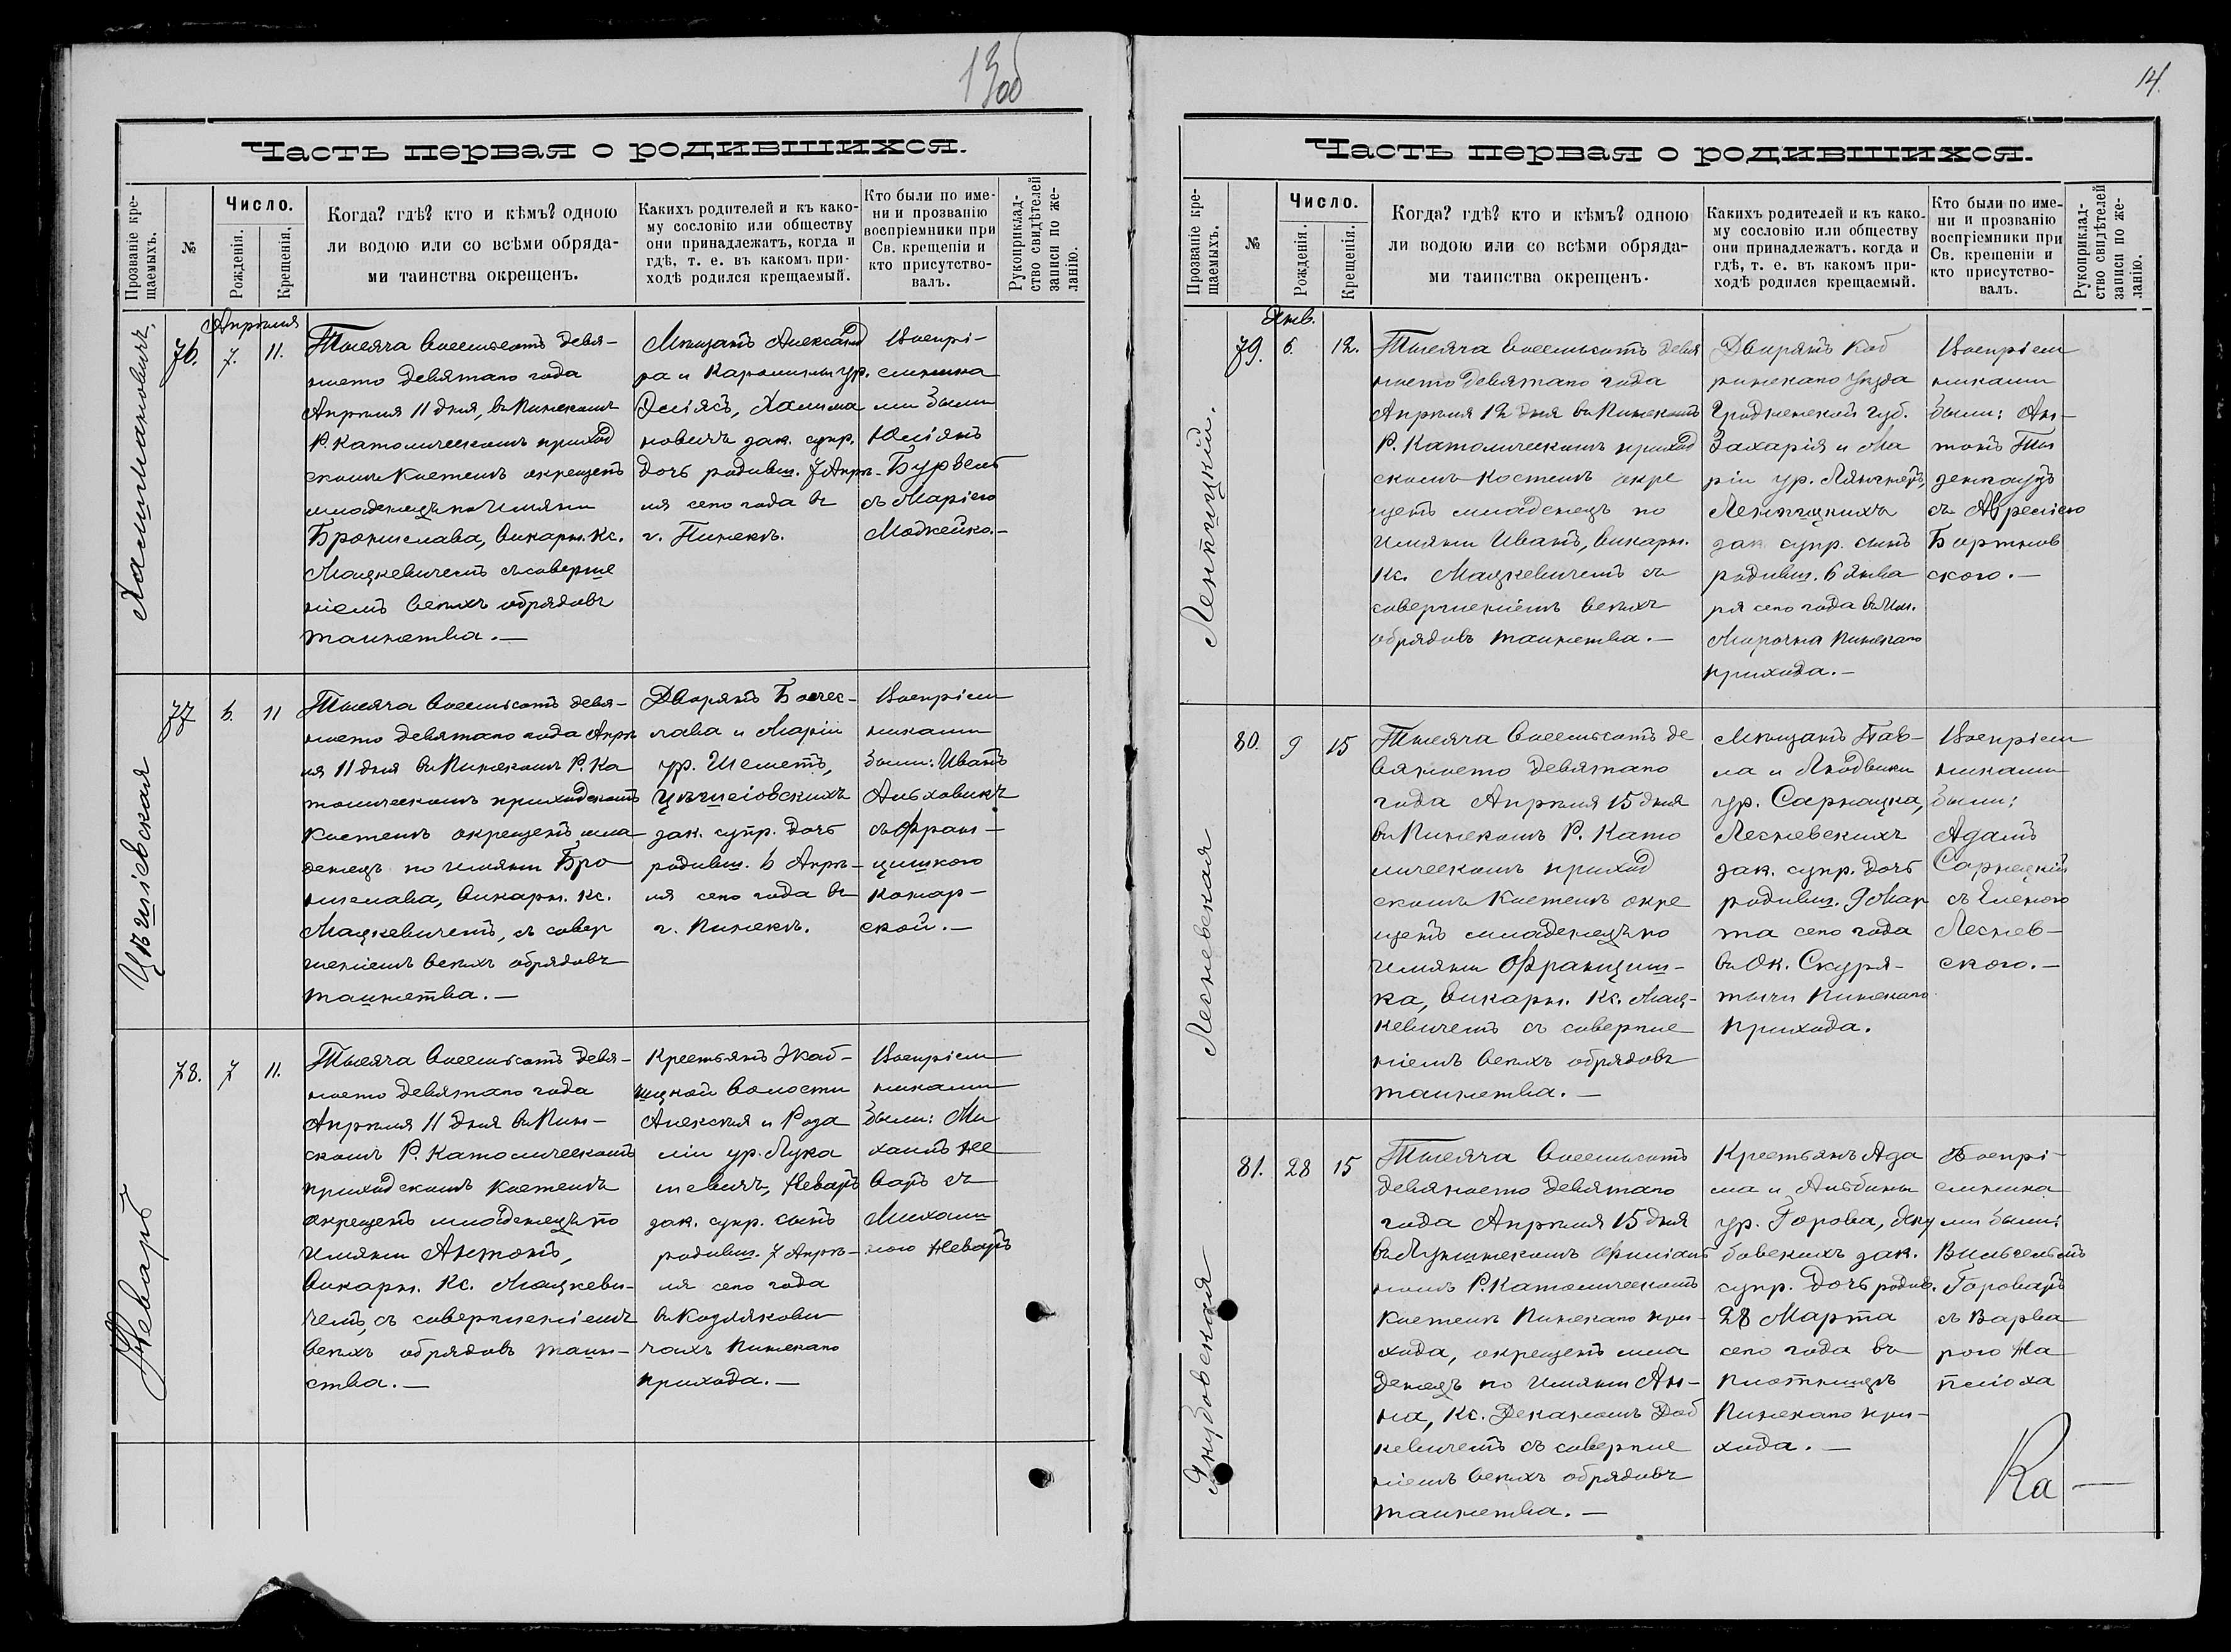 13об
Часть первая о родившихся.
Прозваніе кре-
щаемыхъ.
№
Число.
Рожденія.
Крещенія.
Когда? гдѣ? кто и кѣмъ? одною
ли водою или со всѣми обряда-
ми таинства окрещенъ.
Какихъ родителей и къ како-
му сословію или обществу
они принадлежатъ, когда и
гдѣ, т. е. въ какомъ при-
ходѣ родился крещаемый.
Кто были по име-
ни и прозванію
воспріемники при
Св. крещеніи и
кто присутство-
валъ.
Рукоприклад-
ство свидѣтелей
записи по же-
ланію.
Халимановичъ,
76.
Апрѣля
7.
11.
Тысяча восемьсотъ девя-
носто девятаго года
Апрѣля 11 дня, въ Пинскомъ
Р. Католическомъ приход
скомъ костелѣ окрещенъ
младенецъ по имяни
Бронислава, викарн. Кс.
Мацкевичемъ съ соверше
ніемъ всѣхъ обрядовъ
таинства.—
Мѣщанъ Александ
ра и Каролины ур.
Халима
новичъ зак. супр.
дочь родивш. 7 Апрѣ-
ля сего года въ
г. Пинскѣ.
Воспрі-
емника
ми были
Юліянъ
съ Маріею
Можейко.—
77
6.
11
Тысяча восемьсотъ девя-
носто девятаго года Апрѣ
ля 11 дня въ Пинскомъ Р. Ка
толическомъ приходскомъ
костелѣ окрещенъ мла
денецъ по имяни Бро
нислава, викарн. Кс.
Мацкевичемъ, съ совер
шеніемъ всѣхъ обрядовъ
таинства.—
Дворянъ Болес-
лава и Маріи
ур. Шеметъ,
зак. супр. дочь
родивш. 6 Апрѣ-
ля сего года въ
г. Пинскѣ.
Воспріем
никами
были: Иванъ
съ Фран-
цишкою
Комар-
ской.—
Неваръ
78.
7
11.
Тысяча восемьсотъ девя-
носто девятаго года
Апрѣля 11 дня въ Пин-
скомъ Р. Католическомъ
приходскомъ костелѣ
окрещенъ младенецъ по
имяни Антонъ,
викарн. Кс. Мацкеви-
чемъ, съ совершеніемъ
всѣхъ обрядовъ таин-
ства.—
Крестьянъ Жаб-
чицкой волости
Алексѣя и Роза
ліи ур. Лука
шевичъ, Неваръ
зак. супр. сынъ
родивш. 7 Апрѣ-
ля сего года
въ Козлякови
чахъ Пинскаго
прихода.—
Воспріем
никами
были: Ми
хаилъ Не
варъ съ
Михали
ною Неваръ
14.
Часть первая о родившихся.
Прозваніе кре-
щаемыхъ.
№
Число.
Рожденія.
Крещенія.
Когда? гдѣ? кто и кѣмъ? одною
ли водою или со всѣми обряда-
ми таинства окрещенъ.
Какихъ родителей и къ како-
му сословію или обществу
они принадлежатъ. когда и
гдѣ, т. е. въ какомъ при-
ходѣ родился крещаемый.
Кто были по име-
ни и прозванію
воспріемники при
Св. крещеніи и
кто присутство-
валъ.
Рукоприклад-
ство свидѣтелей
записи по же-
ланію.
79.
Янв.
6.
12.
Тысяча восемьсотъ девя
носто девятаго года
Апрѣля 12 дня въ Пинскомъ
Р. Католическомъ приход
скомъ костелѣ окре
щенъ младенецъ по
имяни Иванъ, викарн.
Кс. Мацкевичемъ съ
совершеніемъ всѣхъ
обрядовъ таинства.—
Дворянъ Коб
ринскаго уѣзда
Гродненской губ.
Захарія и Ма
ріи ур.
зак. супр. сынъ
родивш. 6 Янва
ря сего года въ им.
Пинскаго
прихода.—
Воспріем
никами
были: Ан-
тонъ
съ Авреліею
Бортнов
скою.—
Лесневская
80.
9
15
Тысяча восемьсотъ де
вяносто девятаго
года Апрѣля 15 дня
въ Пинскомъ Р. Като
лическомъ приход
скомъ костелѣ окре
щенъ младенецъ по
имяни Францишъ-
ка, викарн. Кс. Мац-
кевичемъ съ соверше
ніемъ всѣхъ обрядовъ
таинства.—
Мѣщанъ Пав-
ла и Людвики
ур. Сарнацка,
Лесневскихъ
зак. супр. дочь
родивш. 9 Мар
та сего года
въ Ок. Скуря-
тычи Пинскаго
прихода.
Воспріем
никами
были:
Адамъ
Сарнецкій
съ Еленою
Леснев-
скою.—
Якубовская
81.
28
15
Тысяча восемьсотъ
девяносто девятаго
года Апрѣля 15 дня
въ Лунинскомъ филіаль
номъ Р. Католическомъ
костелѣ Пинскаго при-
хода, окрещенъ мла
денецъ по имяни Ан-
на, Кс. Деканомъ Доб
кевичемъ съ соверше
ніемъ всѣхъ обрядовъ
таинства.—
Крестьянъ Ада
ма и Альбины
ур. Горова, Яку
бовскихъ зак.
супр. дочь родив.
28 Марта
сего года въ
Плотницѣ
Пинскаго при-
хода.—
Воспрі-
емника
ми были:
Вильгельмъ
съ Варва
рою
Ка—